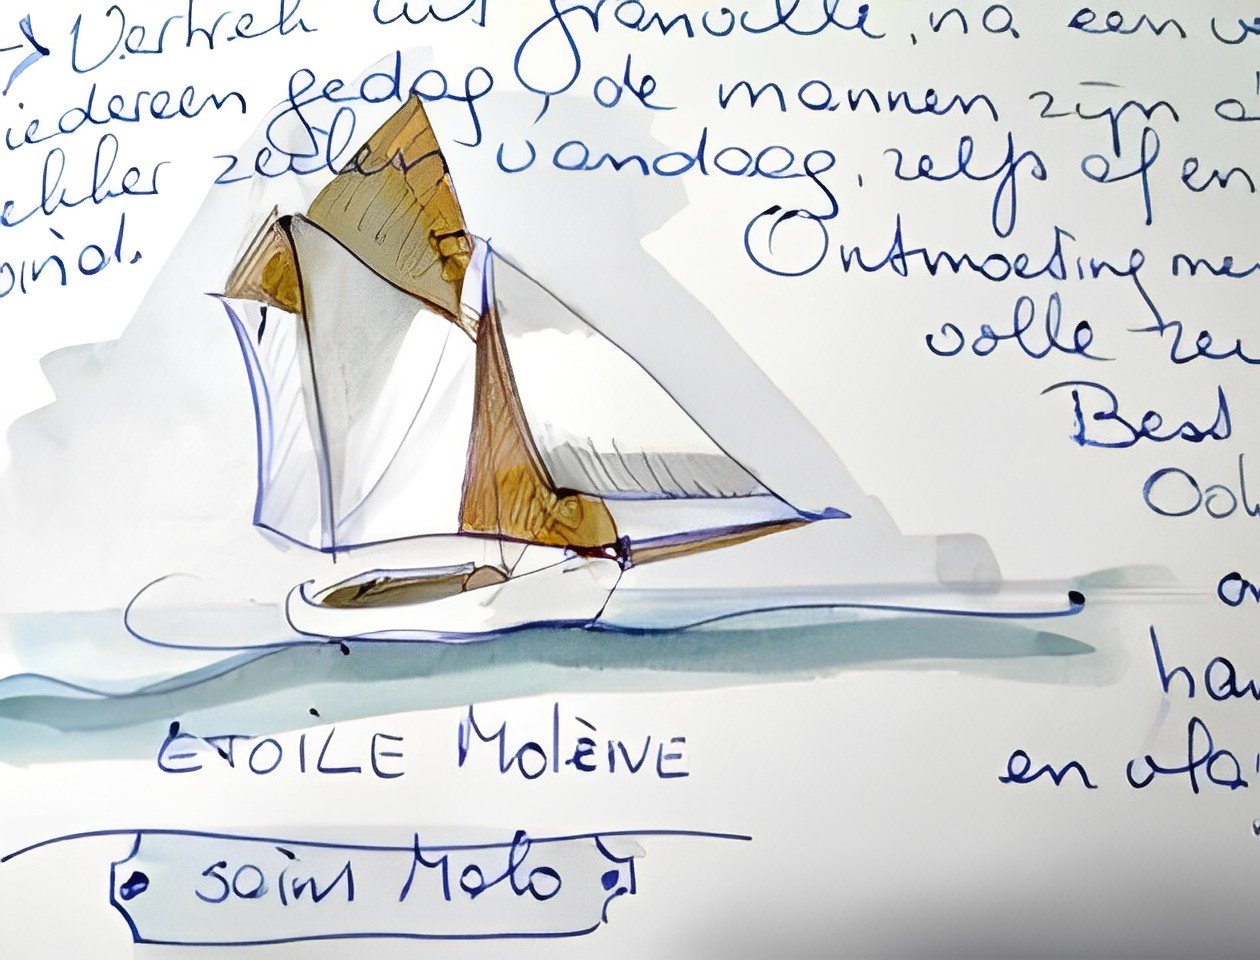 → Vertrek uit Granville, na een
iedereen gedag, de mannen zijn
zeilen vandaag, zelfs af en
wind.
Ontmoeting
volle
Best
en
ETOILE MOLÈNE
saint Malo